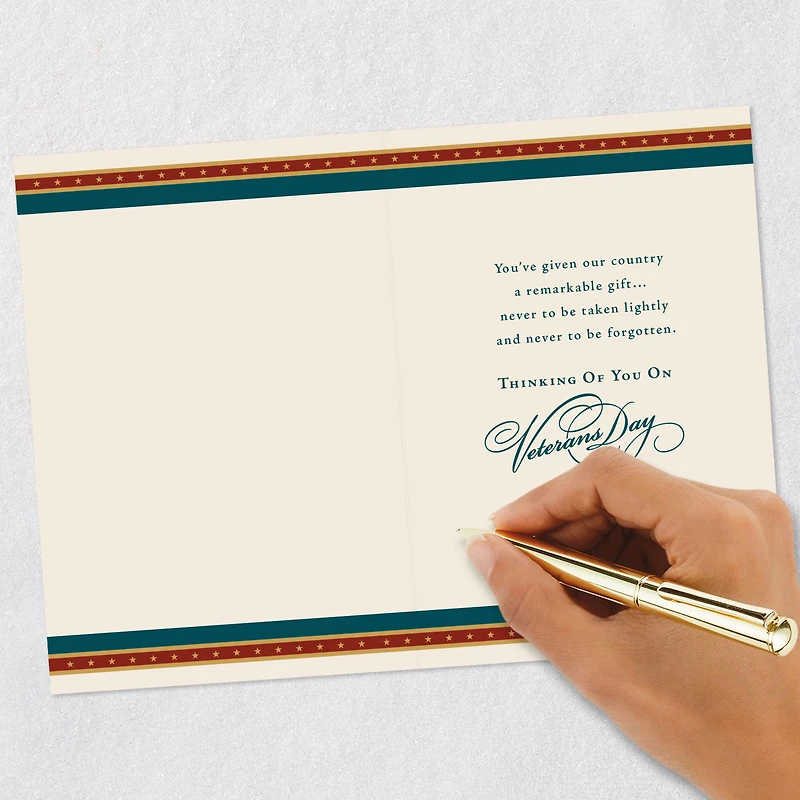 You've given our country
a remarkable gift...
never to be taken lightly
and never to be forgotten.
Thinking Of You On
Veterans Day